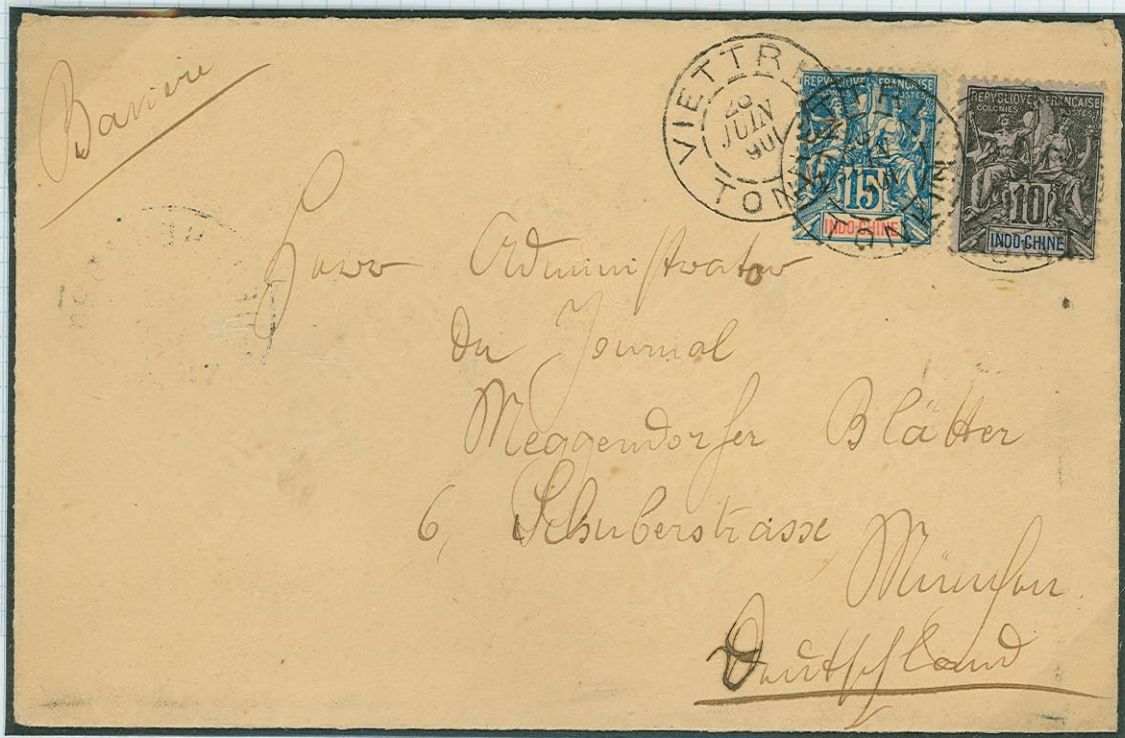 Bavière
VIETTRI
TONKIN
28
JUIN
RÉPUBLIQUE FRANÇAISE
COLONIES POSTES
15
INDO-CHINE
RÉPUBLIQUE FRANÇAISE
COLONIES POSTES
10
INDO-CHINE
Herr Administrator
du Journal
Meggendorfer Blätter
6, Schuberstrasse
München
Deutschland